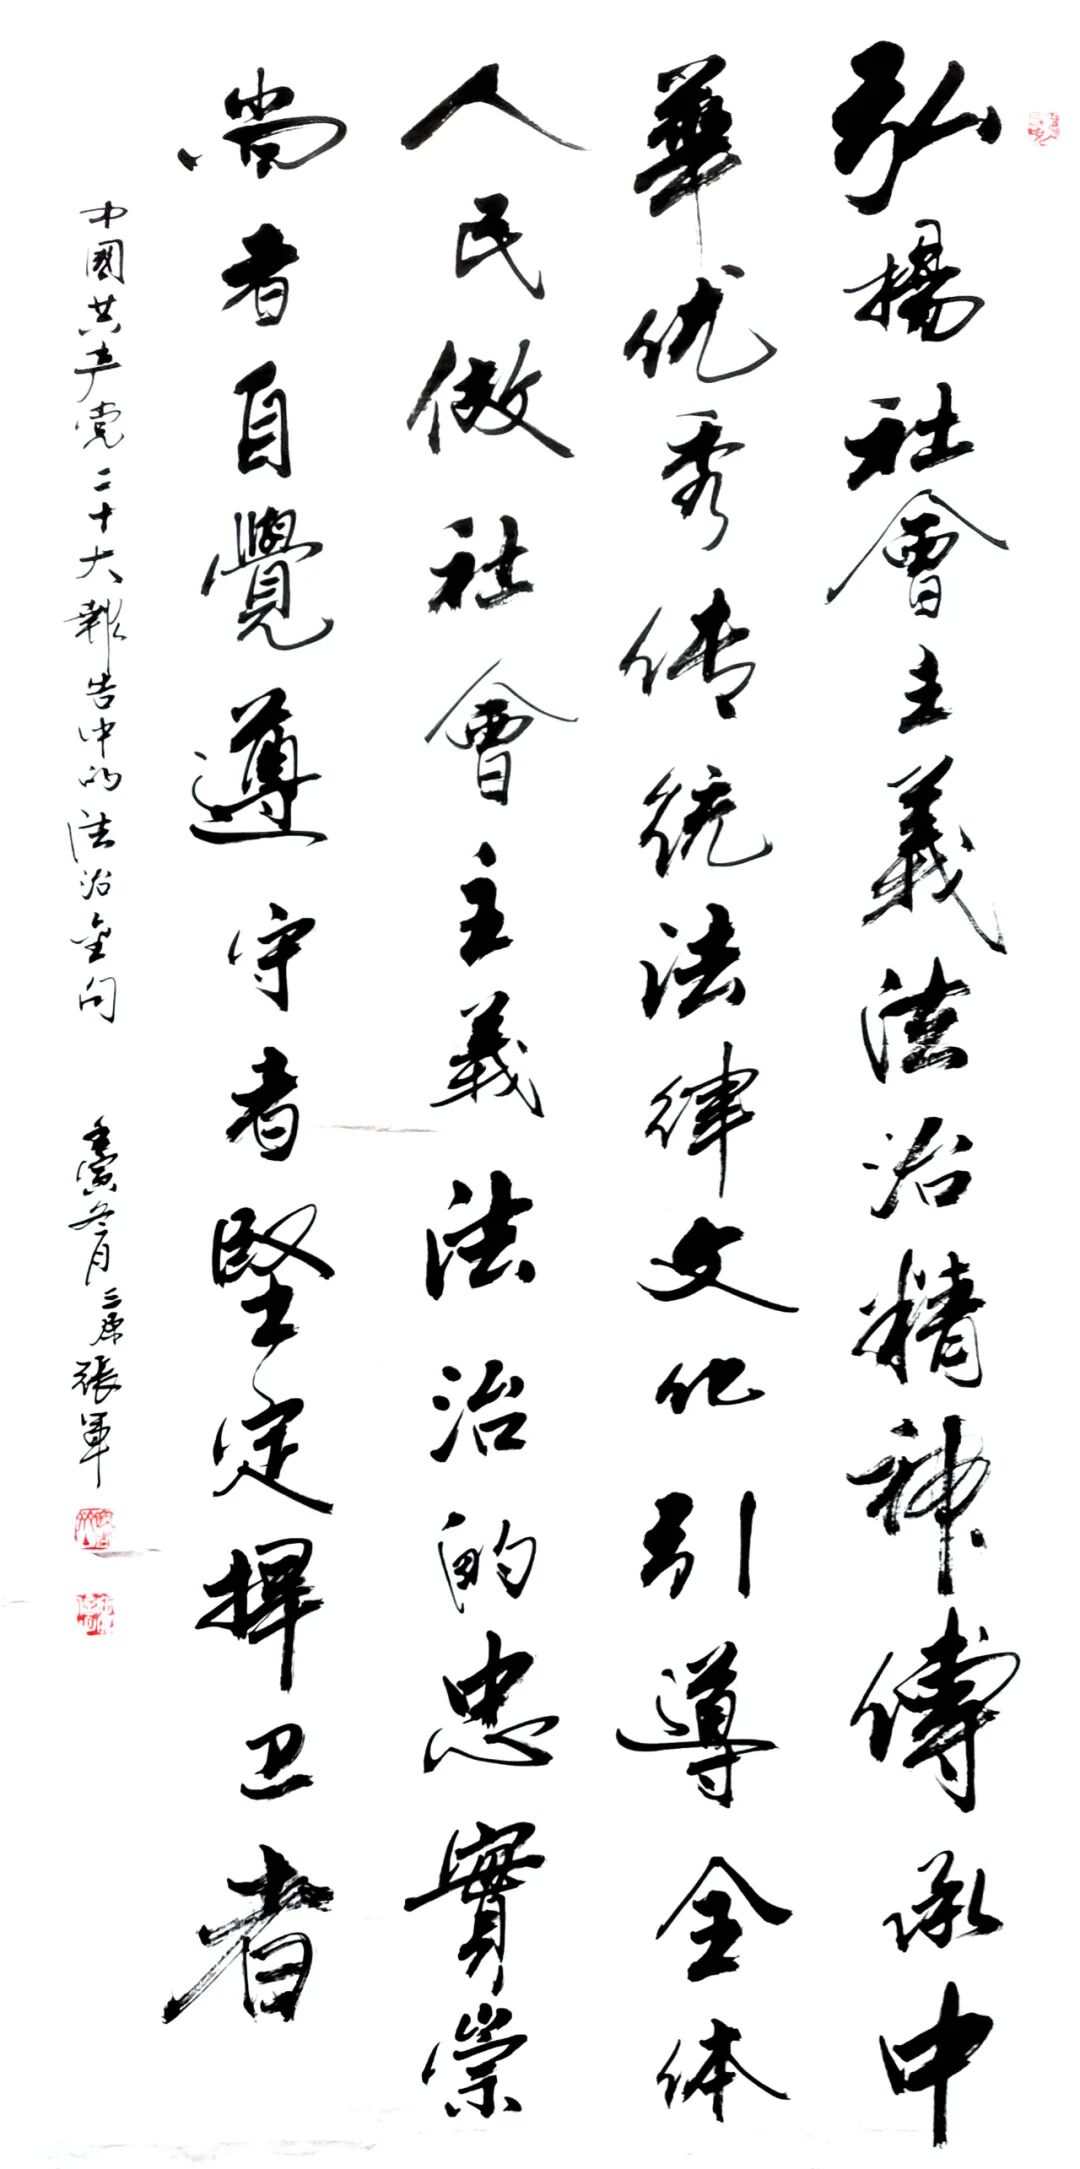 弘揚社會主義法治精神傳承中
華优秀传统法律文化引導全体
人民做社會主義法治的忠實崇
尚者自覺遵守者堅定捍卫者
中國共产党二十大報告中的法治金句
壬寅冬月三原張軍